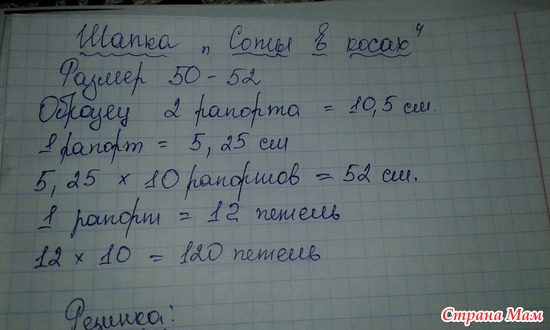 Шапка „Соты в косах"
Размер 50-52
Образец 2 рапорта = 10,5 см.
1 рапорт = 5,25 см
5,25 × 10 рапортов = 52 см.
1 рапорт = 12 петель
12 × 10 = 120 петель
Резинка:
Страна Мам